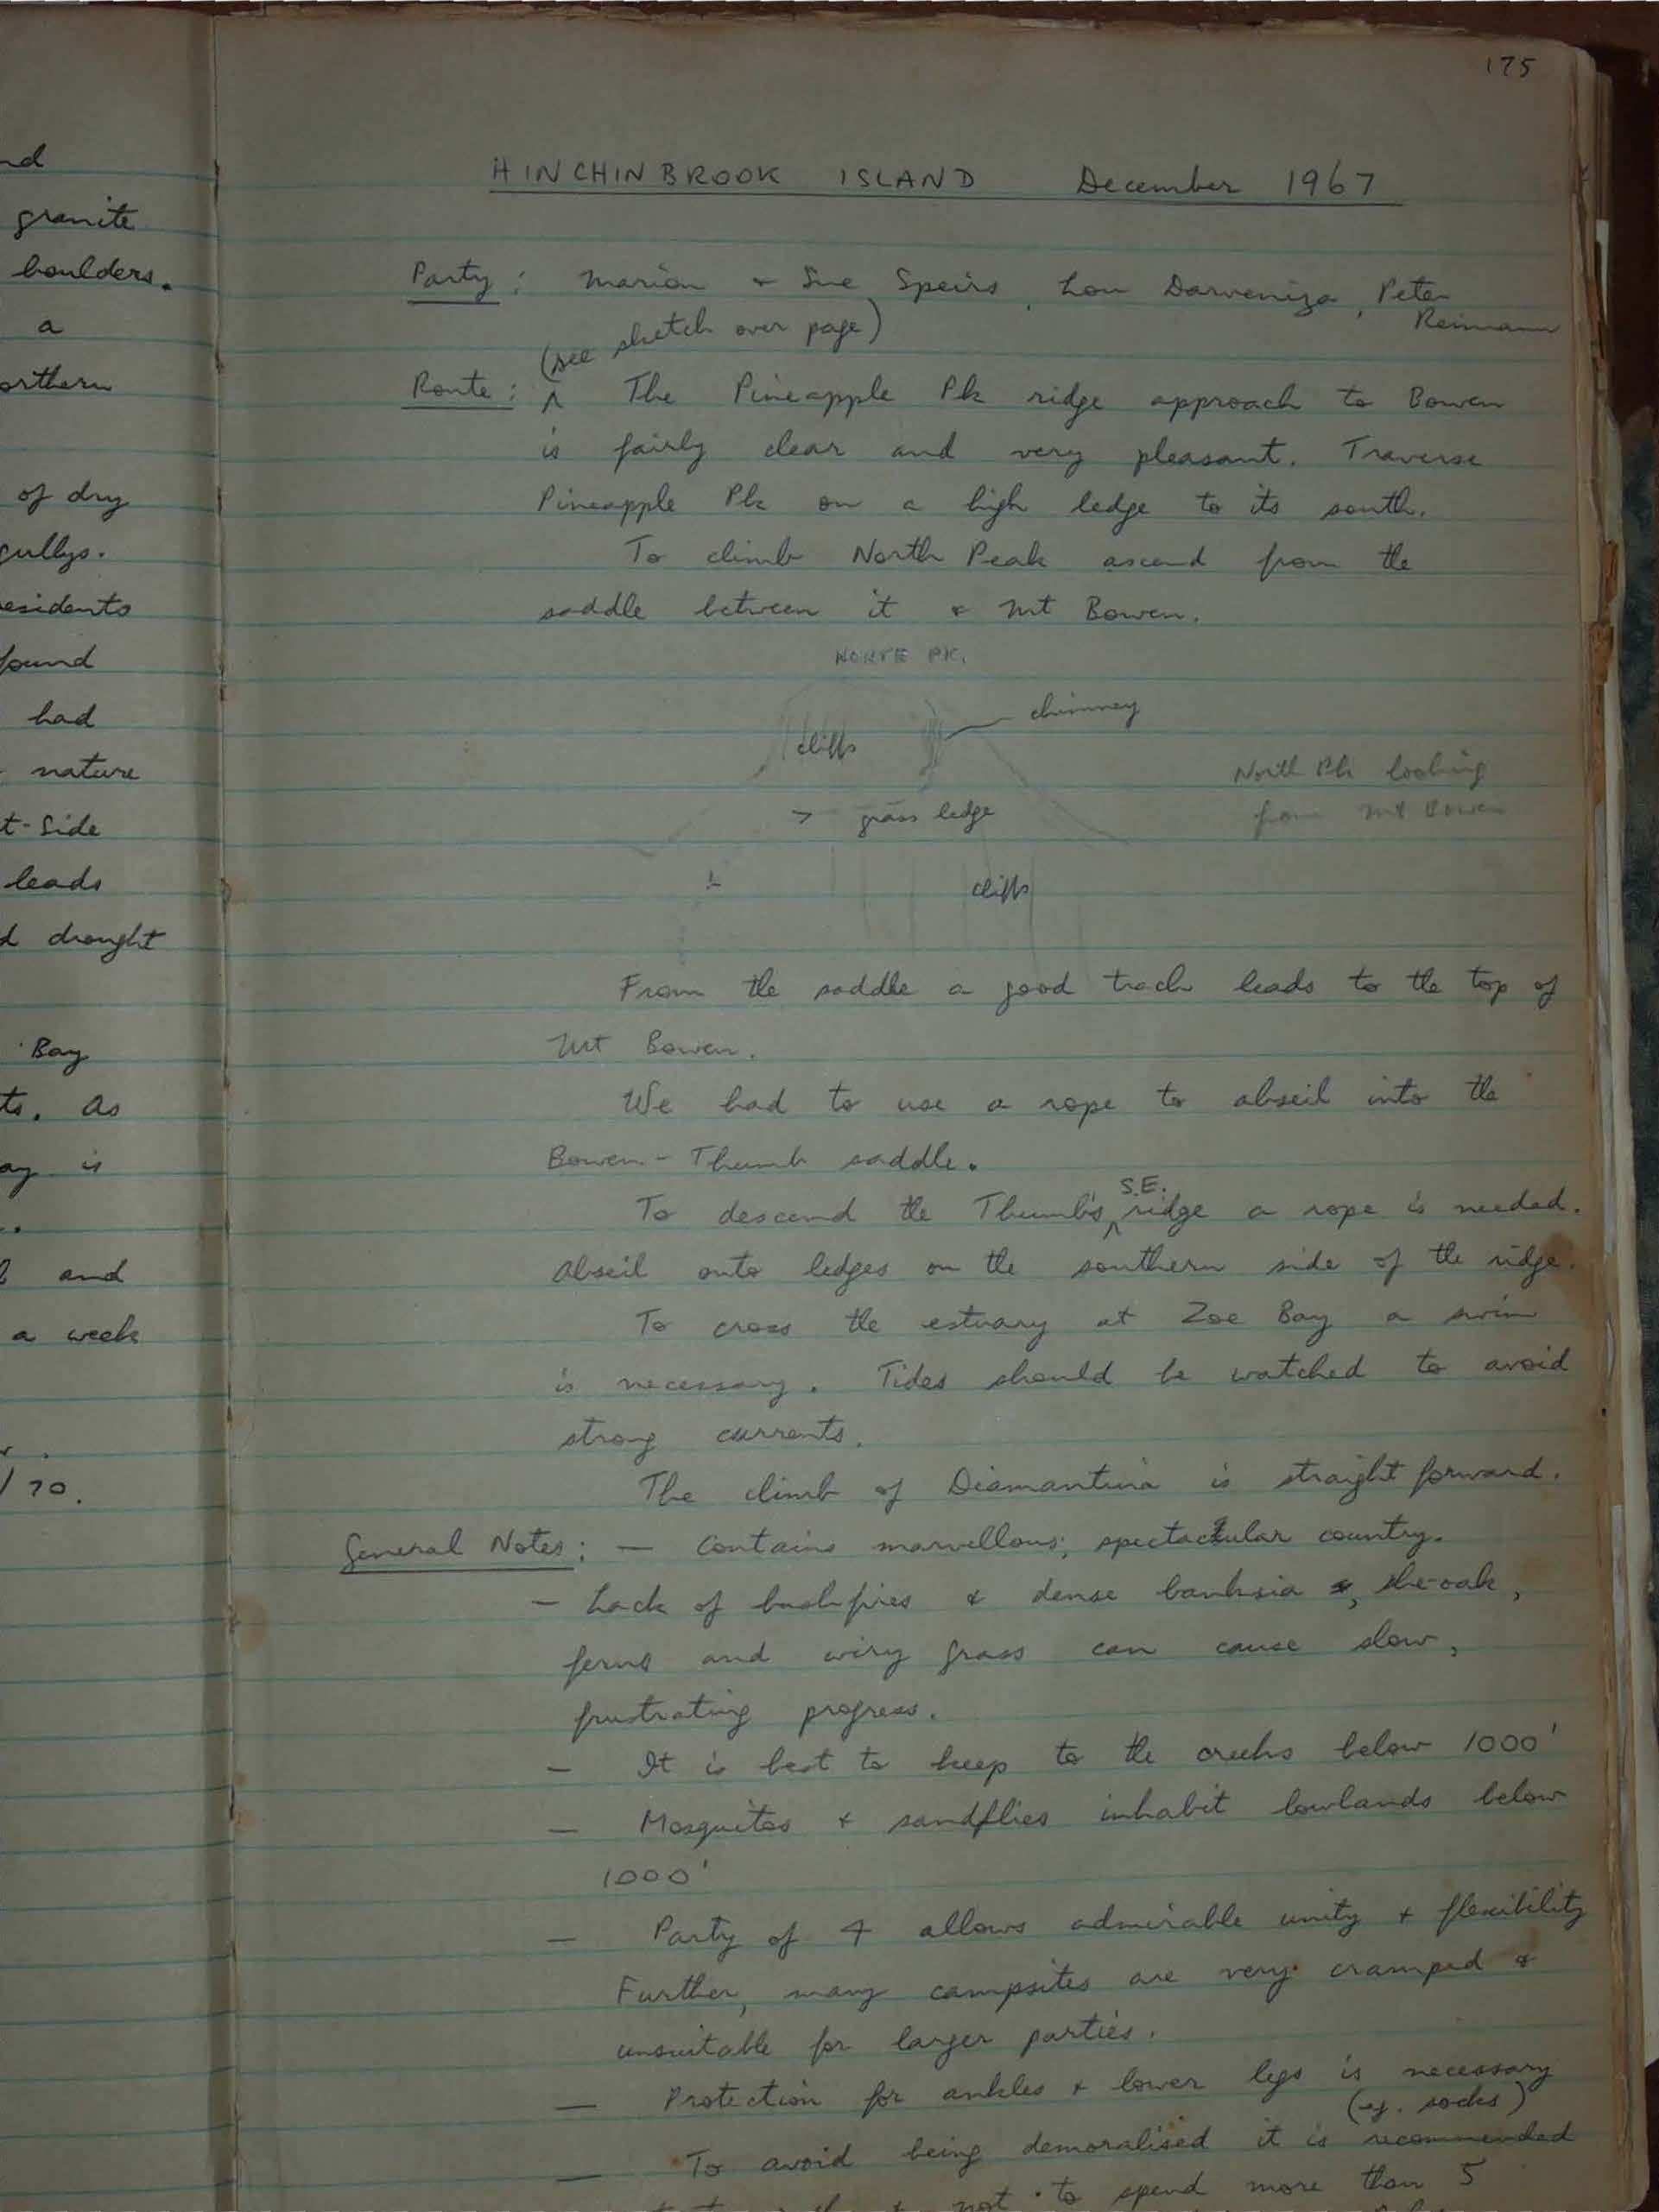 nd
granite
boulders.
a
orthern
of dry
gullys.
esidents
found
had
nature
t-Side
leads
d drought
Bay
ts. As
ay is
and
a week
/70.
175
HINCHINBROOK ISLAND December 1967
Party: Marion & Sue Speirs, Lou Darveniza, Peter
Reimann
(see sketch over page)
Route: ^ The Pineapple Pk ridge approach to Bowen
is fairly clear and very pleasant. Traverse
Pineapple Pk on a high ledge to its south.
To climb North Peak ascend from the
saddle between it & Mt Bowen.
NORTE PK.
chimney
cliffs
North Pk looking
from Mt Bowen
grass ledge
cliffs
From the saddle a good track leads to the top of
Mt Bowen.
We had to use a rope to abseil into the
Bowen-Thumb saddle.
S.E.
To descend the Thumb's ^ ridge a rope is needed.
Abseil onto ledges on the southern side of the ridge.
To cross the estuary at Zoe Bay a swim
is necessary. Tides should be watched to avoid
strong currents.
The climb of Diamantina is straight forward.
General Notes: — Contains marvellous, spectacular country.
— Lack of bushfires & dense banksia, she-oak,
ferns and wiry grass can cause slow,
frustrating progress.
— It is best to keep to the creeks below 1000'
— Mosquitos & sandflies inhabit lowlands below
1000'
— Party of 4 allows admirable unity & flexibility
Further, many campsites are very cramped &
unsuitable for larger parties.
— Protection for ankles & lower legs is necessary
(eg. socks)
— To avoid being demoralised it is recommended
not to spend more than 5